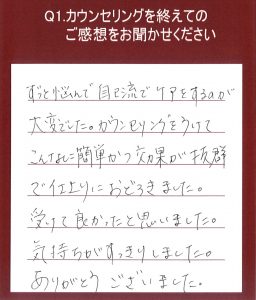 Q1.カウンセリングを終えての
ご感想をお聞かせください
ずっと悩んで自己流でケアをするのが
大変でした。カウンセリングをうけて
こんなに簡単かつ効果が抜群
で仕上りにおどろきました。
受けて良かったと思いました。
気持ちがすっきりしました。
ありがとうございました。